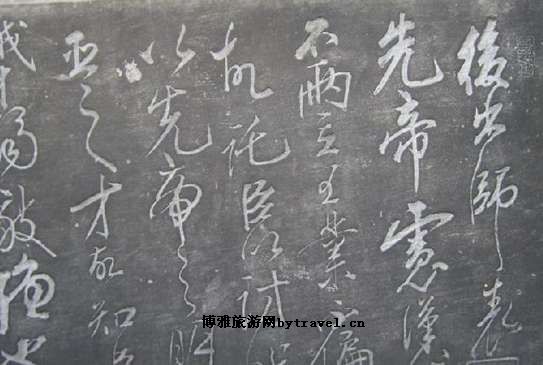 後出師表
先帝慮漢
不兩立王業不偏
故託臣以討
以先帝之明
臣之才故知臣
賊才弱敵強也
博雅旅游网bytravel.cn